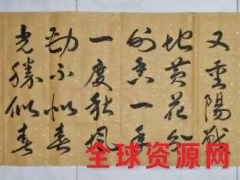 又重陽戰
地黃花分
外香一年
一度秋風
勁不似春
光勝似春
全球资源网